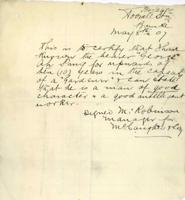 Burke
May 8th 07
This is to certify that I have
known the bearer George
Ah Sang for upwards of
ten (10) years in the capacity
of a gardener & can state
that he is a man of good
character & a good intelligent
worker.
Signed M. Robinson
manager for